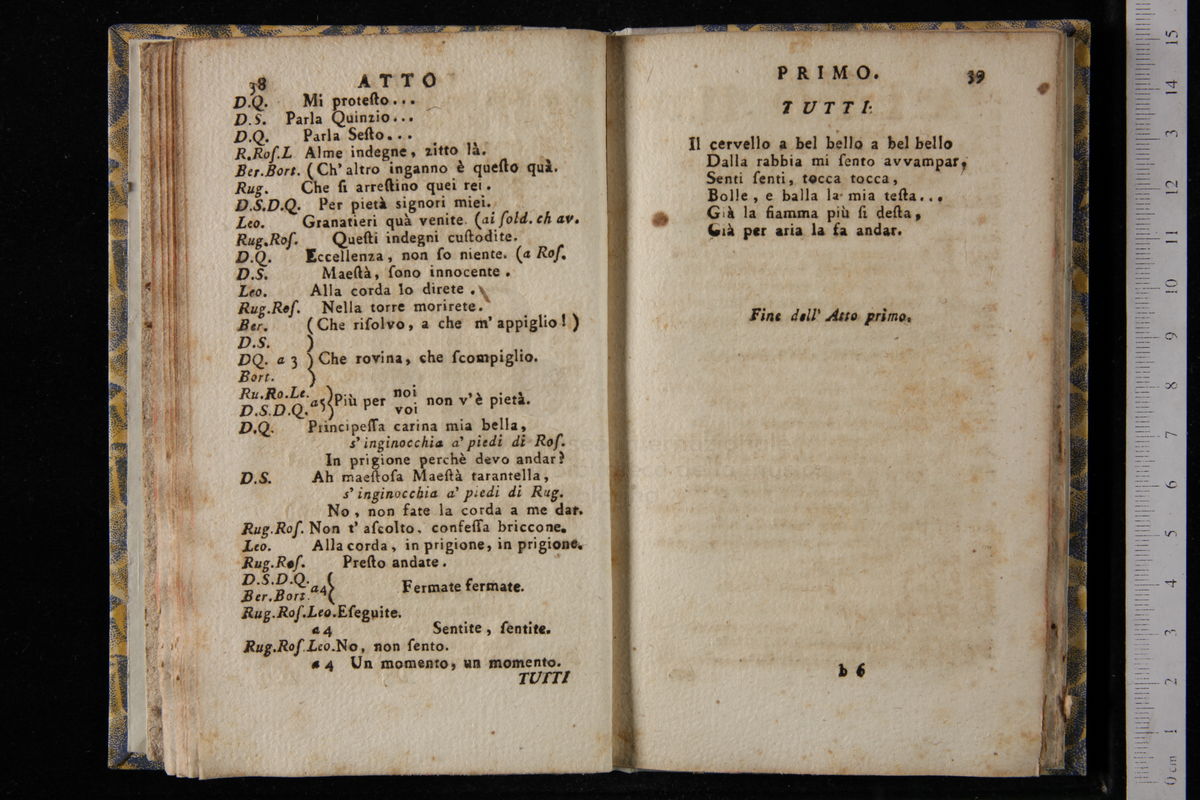 38 ATTO
D.Q. Mi proteſto...
D.S. Parla Quinzio...
D.Q. Parla Seſto...
R.Roſ.L Alme indegne, zitto là.
Ber.Bort. (Ch' altro inganno è queſto quà.
Rug. Che ſi arreſtino quei rei.
D.S.D.Q. Per pietà signori miei.
Leo. Granatieri quà venite. (ai ſold. ch av.
Rug.Roſ. Queſti indegni cuſtodite.
D.Q. Eccellenza, non ſo niente. (a Roſ.
D.S. Maeſtà, ſono innocente.
Leo. Alla corda lo direte.
Rug.Roſ. Nella torre morirete.
Ber. (Che riſolvo, a che m' appiglio!)
D.S. )
DQ. a 3 ) Che rovina, che ſcompiglio.
Bort. )
Ru.Ro.Le. ) a5 { Più per noi non v'è pietà.
D.S.D.Q. ) voi
D.Q. Principeſſa carina mia bella,
s' inginocchia a' piedi di Roſ.
In prigione perchè devo andar?
D.S. Ah maeſtoſa Maeſtà tarantella,
s' inginocchia a' piedi di Rug.
No, non fate la corda a me dar.
Rug.Roſ. Non t' aſcolto. confeſſa briccone.
Leo. Alla corda, in prigione, in prigione.
Rug.Roſ. Preſto andate.
D.S.D.Q. a4 { Fermate fermate.
Ber.Bort. (
Rug.Roſ.Leo. Eſeguite.
a 4 Sentite, ſentite.
Rug.Roſ.Leo. No, non ſento.
a 4 Un momento, un momento.
TUTTI
PRIMO. 39
TUTTI.
Il cervello a bel bello a bel bello
Dalla rabbia mi ſento avvampar,
Senti ſenti, tocca tocca,
Bolle, e balla la mia teſta...
Già la fiamma più ſi deſta,
Già per aria la fa andar.
Fine dell' Atto primo.
b 6
15
14
13
12
11
10
9
8
7
6
5
4
3
2
1
0 cm